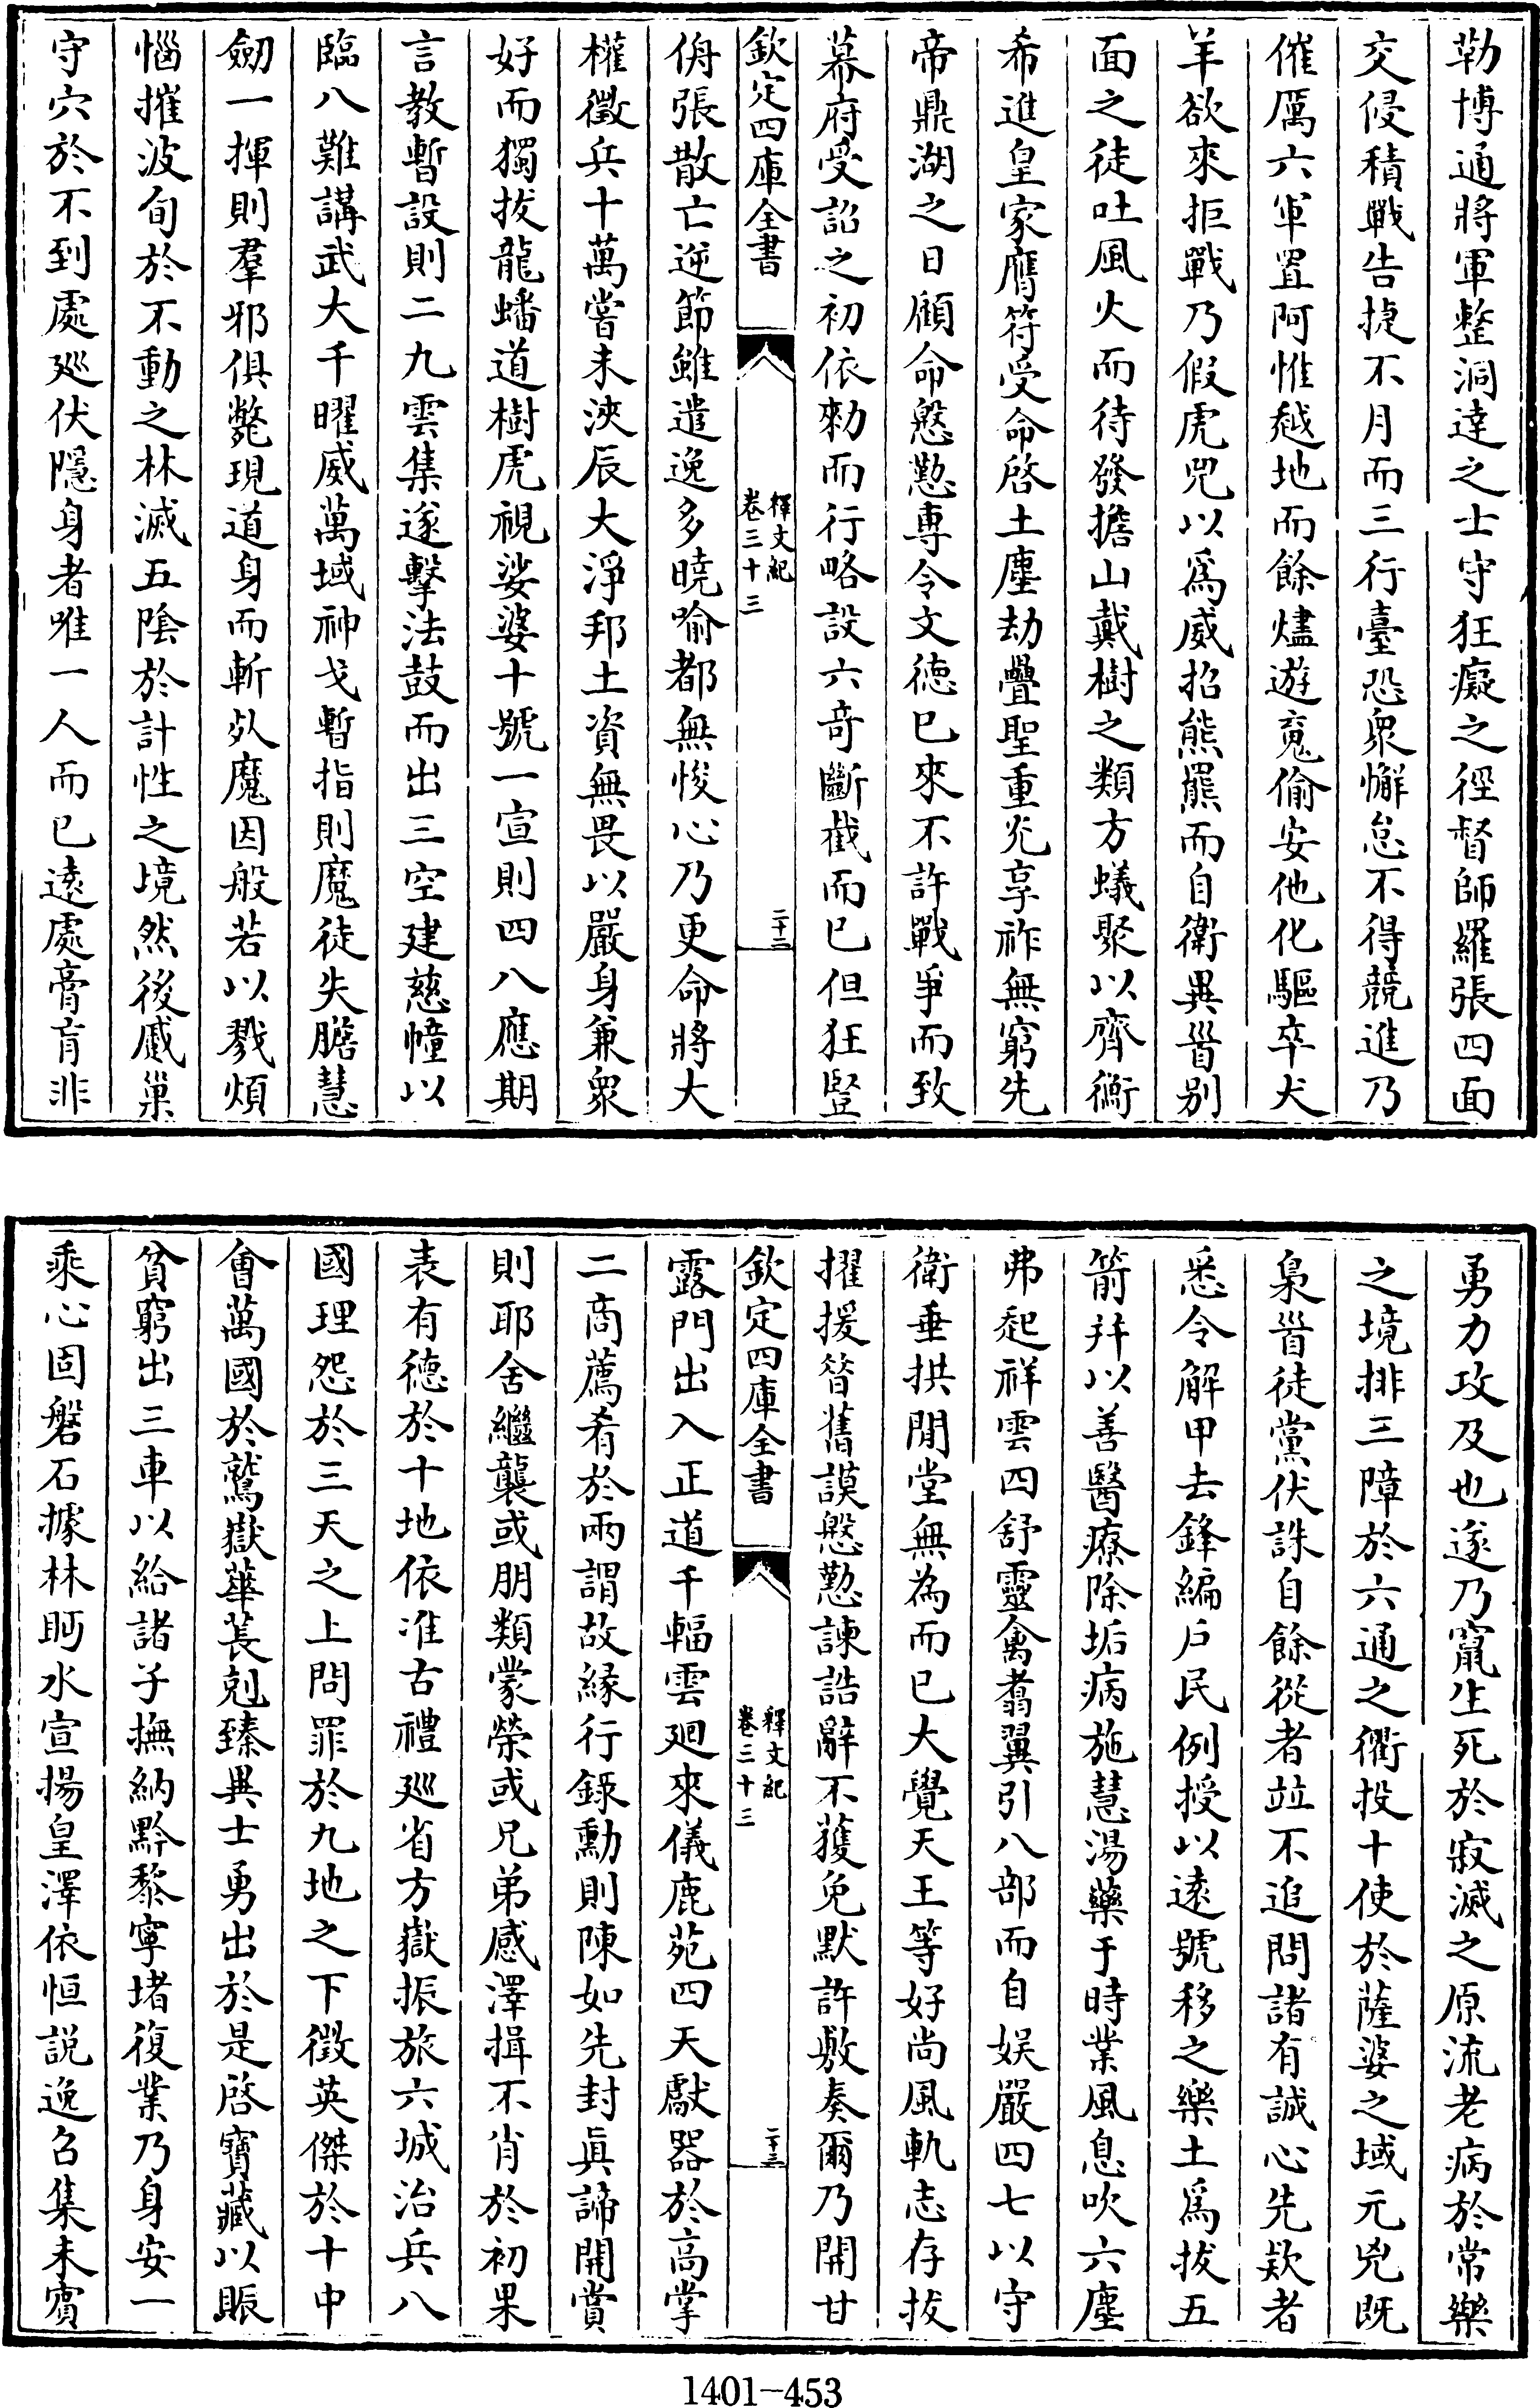 勒博通將軍整洞達之士守狂癡之徑督師羅張四面
交侵積戰告捷不月而三行臺恐衆懈怠不得競進乃
催厲六軍置阿惟越地而餘燼遊䰟偷安他化驅卒犬
羊欲來拒戰乃假虎兕以爲威招熊羆而自衛異㫺别
面之徒吐風火而待發擔山戴樹之類方蟻聚以齊衝
希進皇家膺符受命啓土塵劫疊聖重光享祚無窮先
帝鼎湖之日顧命慇懃専令文徳已來不許戰爭而致
幕府受詔之初依勅而行略設六奇斷截而已但狂豎
欽定四庫全書
釋文紀
卷三十三
二十二
侜張散亡逆節雖遣逸多曉喻都無悛心乃更命將大
權徵兵十萬嘗未浹辰大淨邦土資無畏以嚴身兼衆
好而獨拔龍蟠道樹虎視娑婆十號一宣則四八應期
言教暫設則二九雲集遂擊法鼓而出三空建慈幢以
臨八難講武大千曜威萬域神戈暫指則魔徒失膽慧
劒一揮則羣邪俱斃現道身而斬𣦸魔因般若以戮煩
惱摧波旬於不動之林滅五陰於計性之境然後感巢
守穴於不到處廵伏隱身者唯一人而已逺處膏肓非
勇力攻及也遂乃竄生死於寂滅之原流老病於常樂
之境排三障於六通之衢投十使於薩婆之域元兇旣
梟㫺徒黨伏誅自餘從者竝不追問諸有誠心先欵者
悉令解甲去鋒編戶民例授以逺號移之樂土爲拔五
箭幷以善醫療除垢病施慧湯藥于時業風息吹六塵
弗起祥雲四舒靈禽翥翼引八部而自娱嚴四七以守
衛垂拱閒堂無為而已大覺天王等好尚風軌志存拔
擢援簪舊謨慇懃諫誥辭不獲免默許敷奏爾乃開甘
欽定四庫全書
釋文紀
卷三十三
二十三
露門出入正道千輻雲廻來儀鹿苑四天獻器於高掌
二商薦肴於兩謂故緣行錄勳則陳如先封眞諦開賞
則耶舍繼襲或朋類蒙榮或兄弟感澤揖不肖於初果
表有德於十地依准古禮廵省方嶽振旅六城治兵八
國理怨於三天之上問罪於九地之下徵英傑於十中
會萬國於鷲嶽華萇剋臻異士勇出於是啓寶藏以賑
貧窮出三車以給諸子撫納黔黎寧堵復業乃身安一
乘心固磐石據林眄水宣揚皇澤依恒説逸召集未賓
1401-453